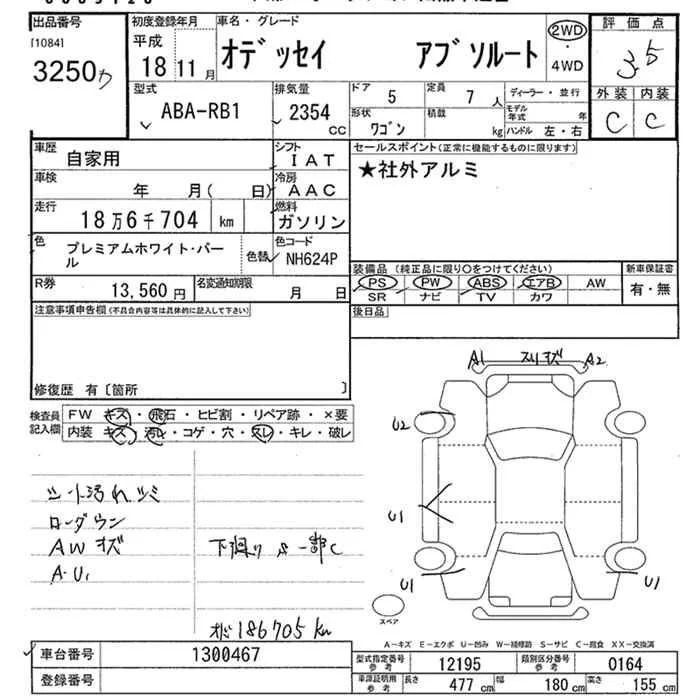 出品番号 初度登録年月 車名・グレード 2WD 評価点
[1084] 平成 オデッセイ アブソルート ・ 3.5
3250 18 年 11 月 4WD 外装 内装
C C
型式 排気量 ドア 5 定員 7 人 ディーラー・並行
ABA-RB1 2354 CC 形状 ワゴン 積載 kg モデル年式 年
ハンドル 左・右
車歴 自家用 シフト IAT セールスポイント(正常に機能するものに限ります)
車検 年 月( 日) 冷房 AAC ★社外アルミ
走行 18万6千704 km 燃料 ガソリン
色 プレミアムホワイト・パール 色替 色コード NH624P
装備品(純正品に限り○をつけてください) 新車保証書
PS PW ABS エアB AW 有・無
SR ナビ TV カワ
R券 13,560 円 名変通知期限 月 日
注意事項申告欄(不具合内容等は具体的に記入して下さい) 後日品
修復歴 有〔箇所 〕
A1 スリキズ A2
検査員記入欄 FW キズ・飛石・ヒビ割・リペア跡・×要
内装 キズ・汚れ・コゲ・穴・スレ・キレ・破レ
U2
シート汚れ シミ
ローダウン U1
AW キズ 下廻り S 一部C
A・U1 U1 U1
スペア
186705 km
A-キズ E-エクボ U-凹み W-補修跡 S-サビ C-腐食 XX-交換済
車台番号 1300467 型式指定番号 参考 12195 類別区分番号 参考 0164
登録番号 車庫証明用 参考 長さ 477 cm 幅 180 cm 高さ 155 cm